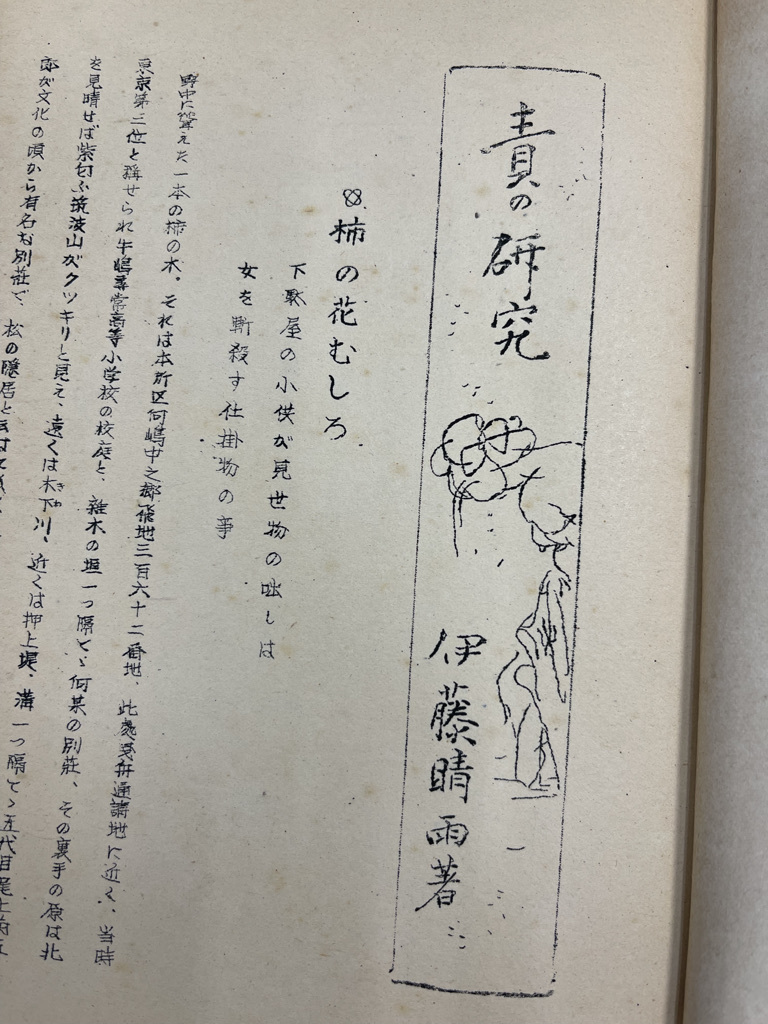 責の研究
伊藤晴雨著
柿の花むしろ
下駄屋の小供が見世物の咄しは
女を斬殺す仕掛物の事
野中に聳えた一本の柿の木。それは本所区向嶋中之郷番地三百六十二番地、此處曳舟通諸地に近く、当時
東京第三位と稱せられ牛嶋尋常高等小学校の校庭と、雑木の垣一つ隔てゝ何某の別荘、その裏手の原は北
を見晴せば紫匂ふ筑波山がクッキリと見え、遠くは木下川、近くは押上堤、溝一つ隔てゝ五代目尾上菊五
郎が文化の頃から有名な別荘で、松の隠居と